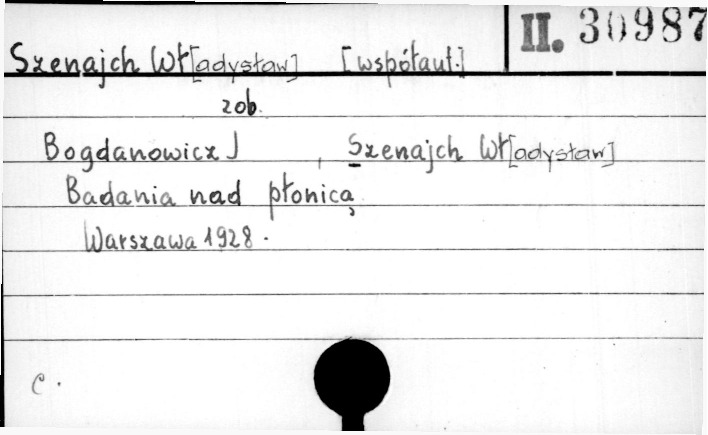 II. 30987
Szenajch Wł[adysław] [współaut.]
zob.
Bogdanowicz J , Szenajch Wł[adysław]
Badania nad płonicą
Warszawa 1928.
c.